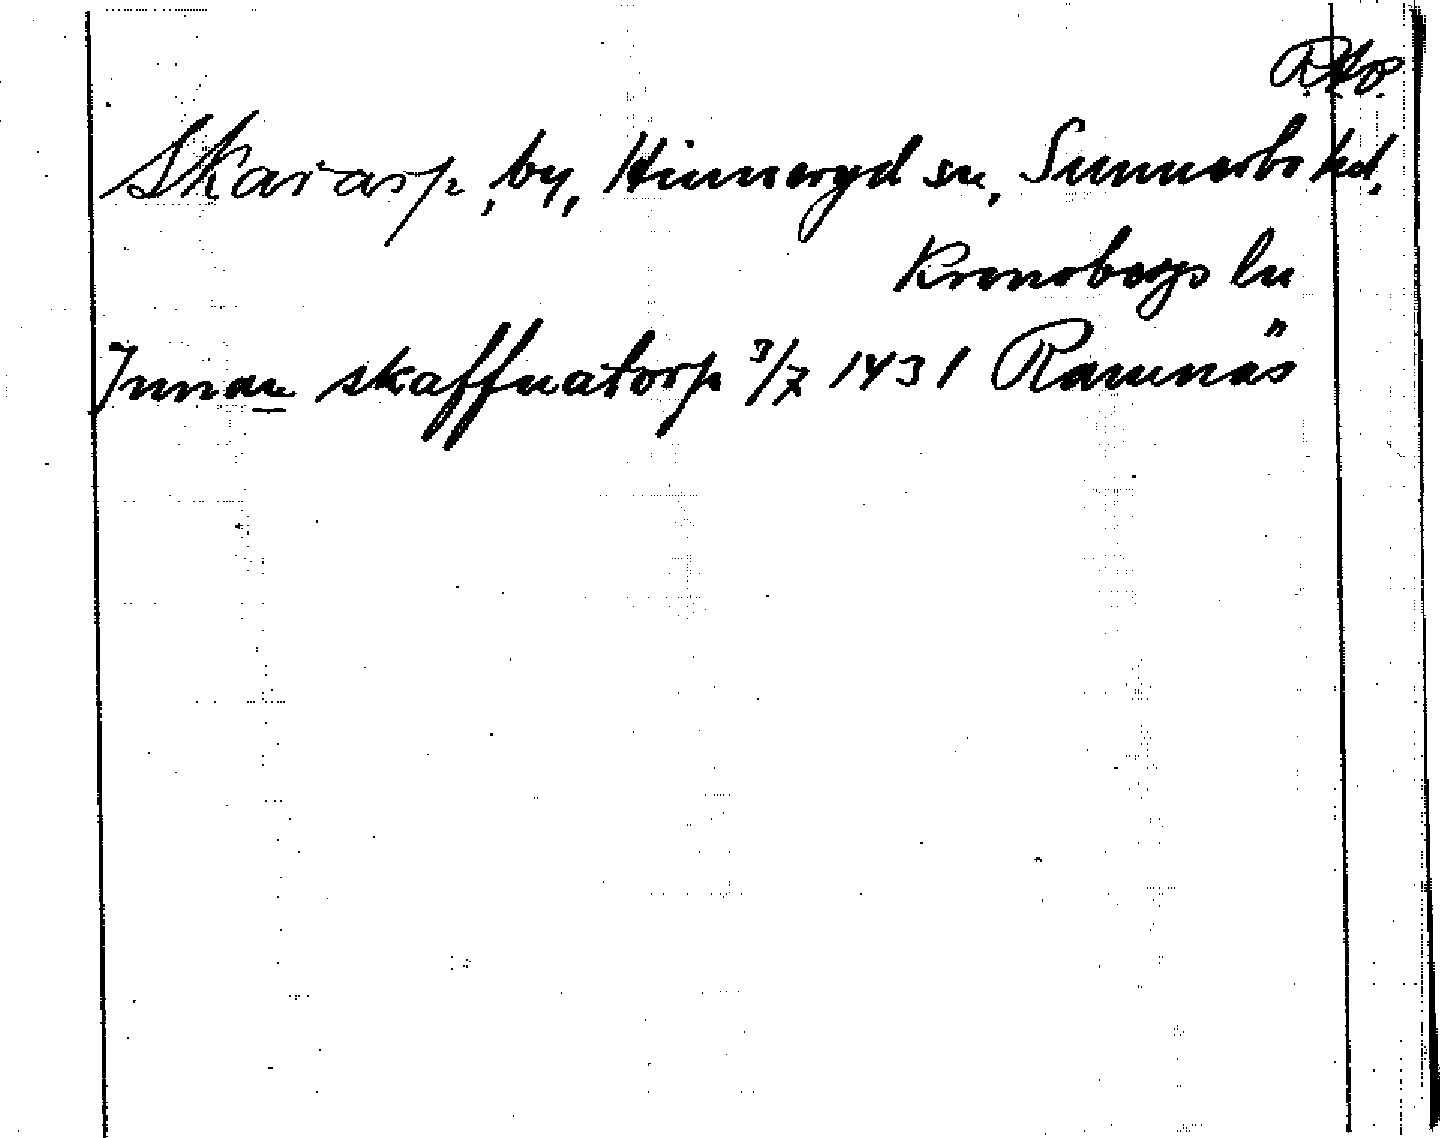 Skararp, by, Hinneryd sn, Sunnerbo hd,
Kronobergs ln
Jnnan skaffnatorp 3/7 1431 Ramnäs